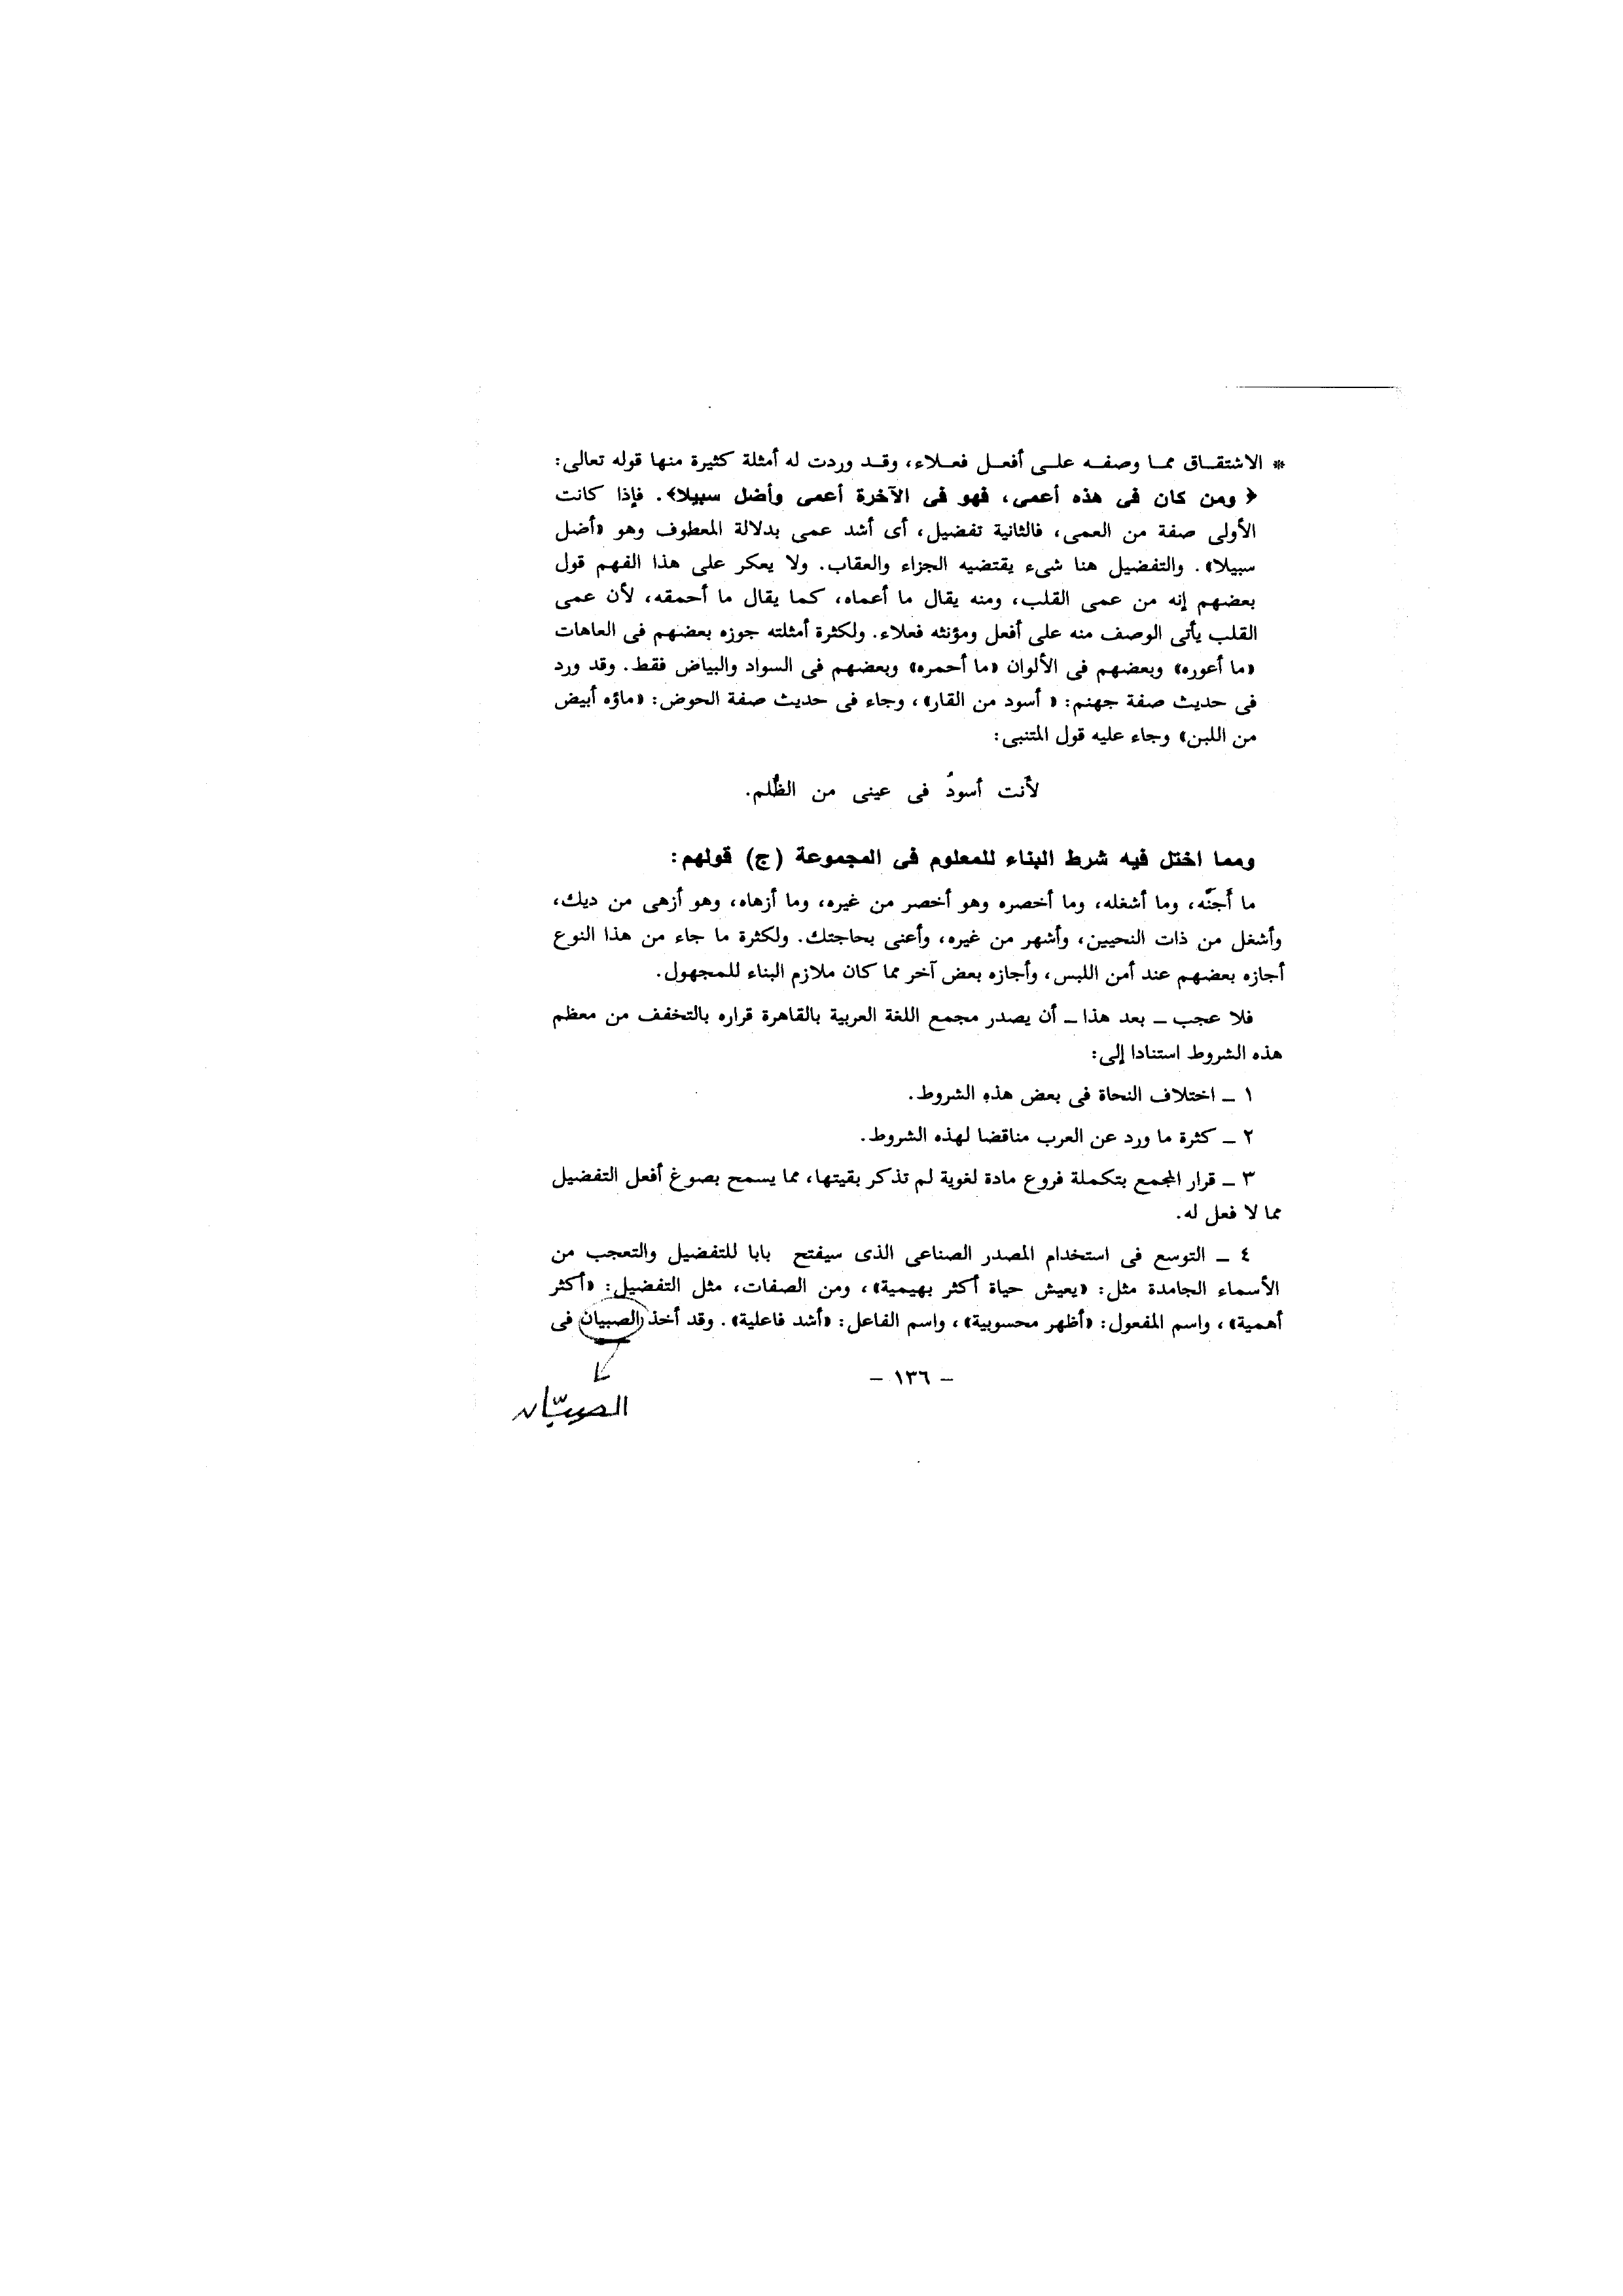 * الاشتقاق مما وصفه على أفعل فعلاء، وقد وردت له أمثلة كثيرة منها قوله تعالى:
﴿ ومن كان فى هذه أعمى، فهو فى الآخرة أعمى وأضل سبيلا﴾. فإذا كانت
الأولى صفة من العمى، فالثانية تفضيل، أى أشد عمى بدلالة المعطوف وهو «أضل
سبيلا». والتفضيل هنا شىء يقتضيه الجزاء والعقاب. ولا يعكر على هذا الفهم قول
بعضهم إنه من عمى القلب، ومنه يقال ما أعماه، كما يقال ما أحمقه، لأن عمى
القلب يأتى الوصف منه على أفعل ومؤنثه فعلاء. ولكثرة أمثلته جوزه بعضهم فى العاهات
«ما أعوره» وبعضهم فى الألوان «ما أحمره» وبعضهم فى السواد والبياض فقط. وقد ورد
فى حديث صفة جهنم: « أسود من القار»، وجاء فى حديث صفة الحوض: «ماؤه أبيض
من اللبن» وجاء عليه قول المتنبى:
لأنت أسودُ فى عينى من الظُّلم.
ومما اختل فيه شرط البناء للمعلوم فى المجموعة (ج) قولهم:
ما أَجَنَّه، وما أشغله، وما أخصره وهو أخصر من غيره، وما أزهاه، وهو أزهى من ديك،
وأشغل من ذات النحيين، وأشهر من غيره، وأعنى بحاجتك. ولكثرة ما جاء من هذا النوع
أجازه بعضهم عند أمن اللبس، وأجازه بعض آخر مما كان ملازم البناء للمجهول.
فلا عجب ـ بعد هذا ـ أن يصدر مجمع اللغة العربية بالقاهرة قراره بالتخفف من معظم
هذه الشروط استنادا إلى:
١ ـ اختلاف النحاة فى بعض هذه الشروط.
٢ ـ كثرة ما ورد عن العرب مناقضا لهذه الشروط.
٣ ـ قرار المجمع بتكملة فروع مادة لغوية لم تذكر بقيتها، مما يسمح بصوغ أفعل التفضيل
مما لا فعل له.
٤ ـ التوسع فى استخدام المصدر الصناعى الذى سيفتح بابا للتفضيل والتعجب من
الأسماء الجامدة مثل: «يعيش حياة أكثر بهيمية»، ومن الصفات، مثل التفضيل: «أكثر
أهمية»، واسم المفعول: «أظهر محسوبية»، واسم الفاعل: «أشد فاعلية». وقد أخذ الصبيان فى
– ١٣٦ –
الصبّان